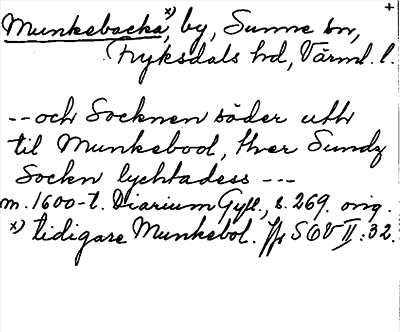 +
Munkebacka x), by, Sunne sn,
Fryksdals hd, Värml. l.
-- och Socknen söder uthr
til Munkebod, hver Sundz
Sockn lychtadess ---
m. 1600-t. Diarium Gyll., s. 269. orig.
x) tidigare Munkebol. Jfr SOV II: 32.